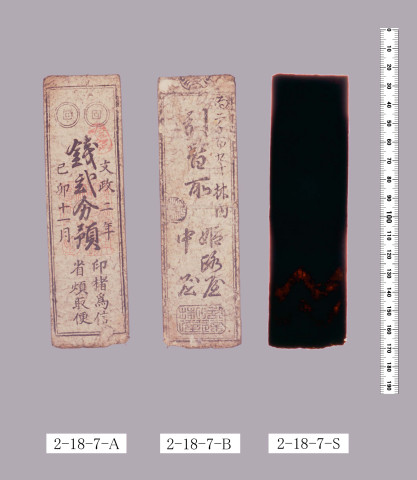 文政二年
錢貳分預
己卯十一月
印楮爲信
省煩取便
引替所
姫路屋
中
2-18-7-A
2-18-7-B
2-18-7-S
0
10
20
30
40
50
60
70
80
90
100
110
120
130
140
150
160
170
180
190